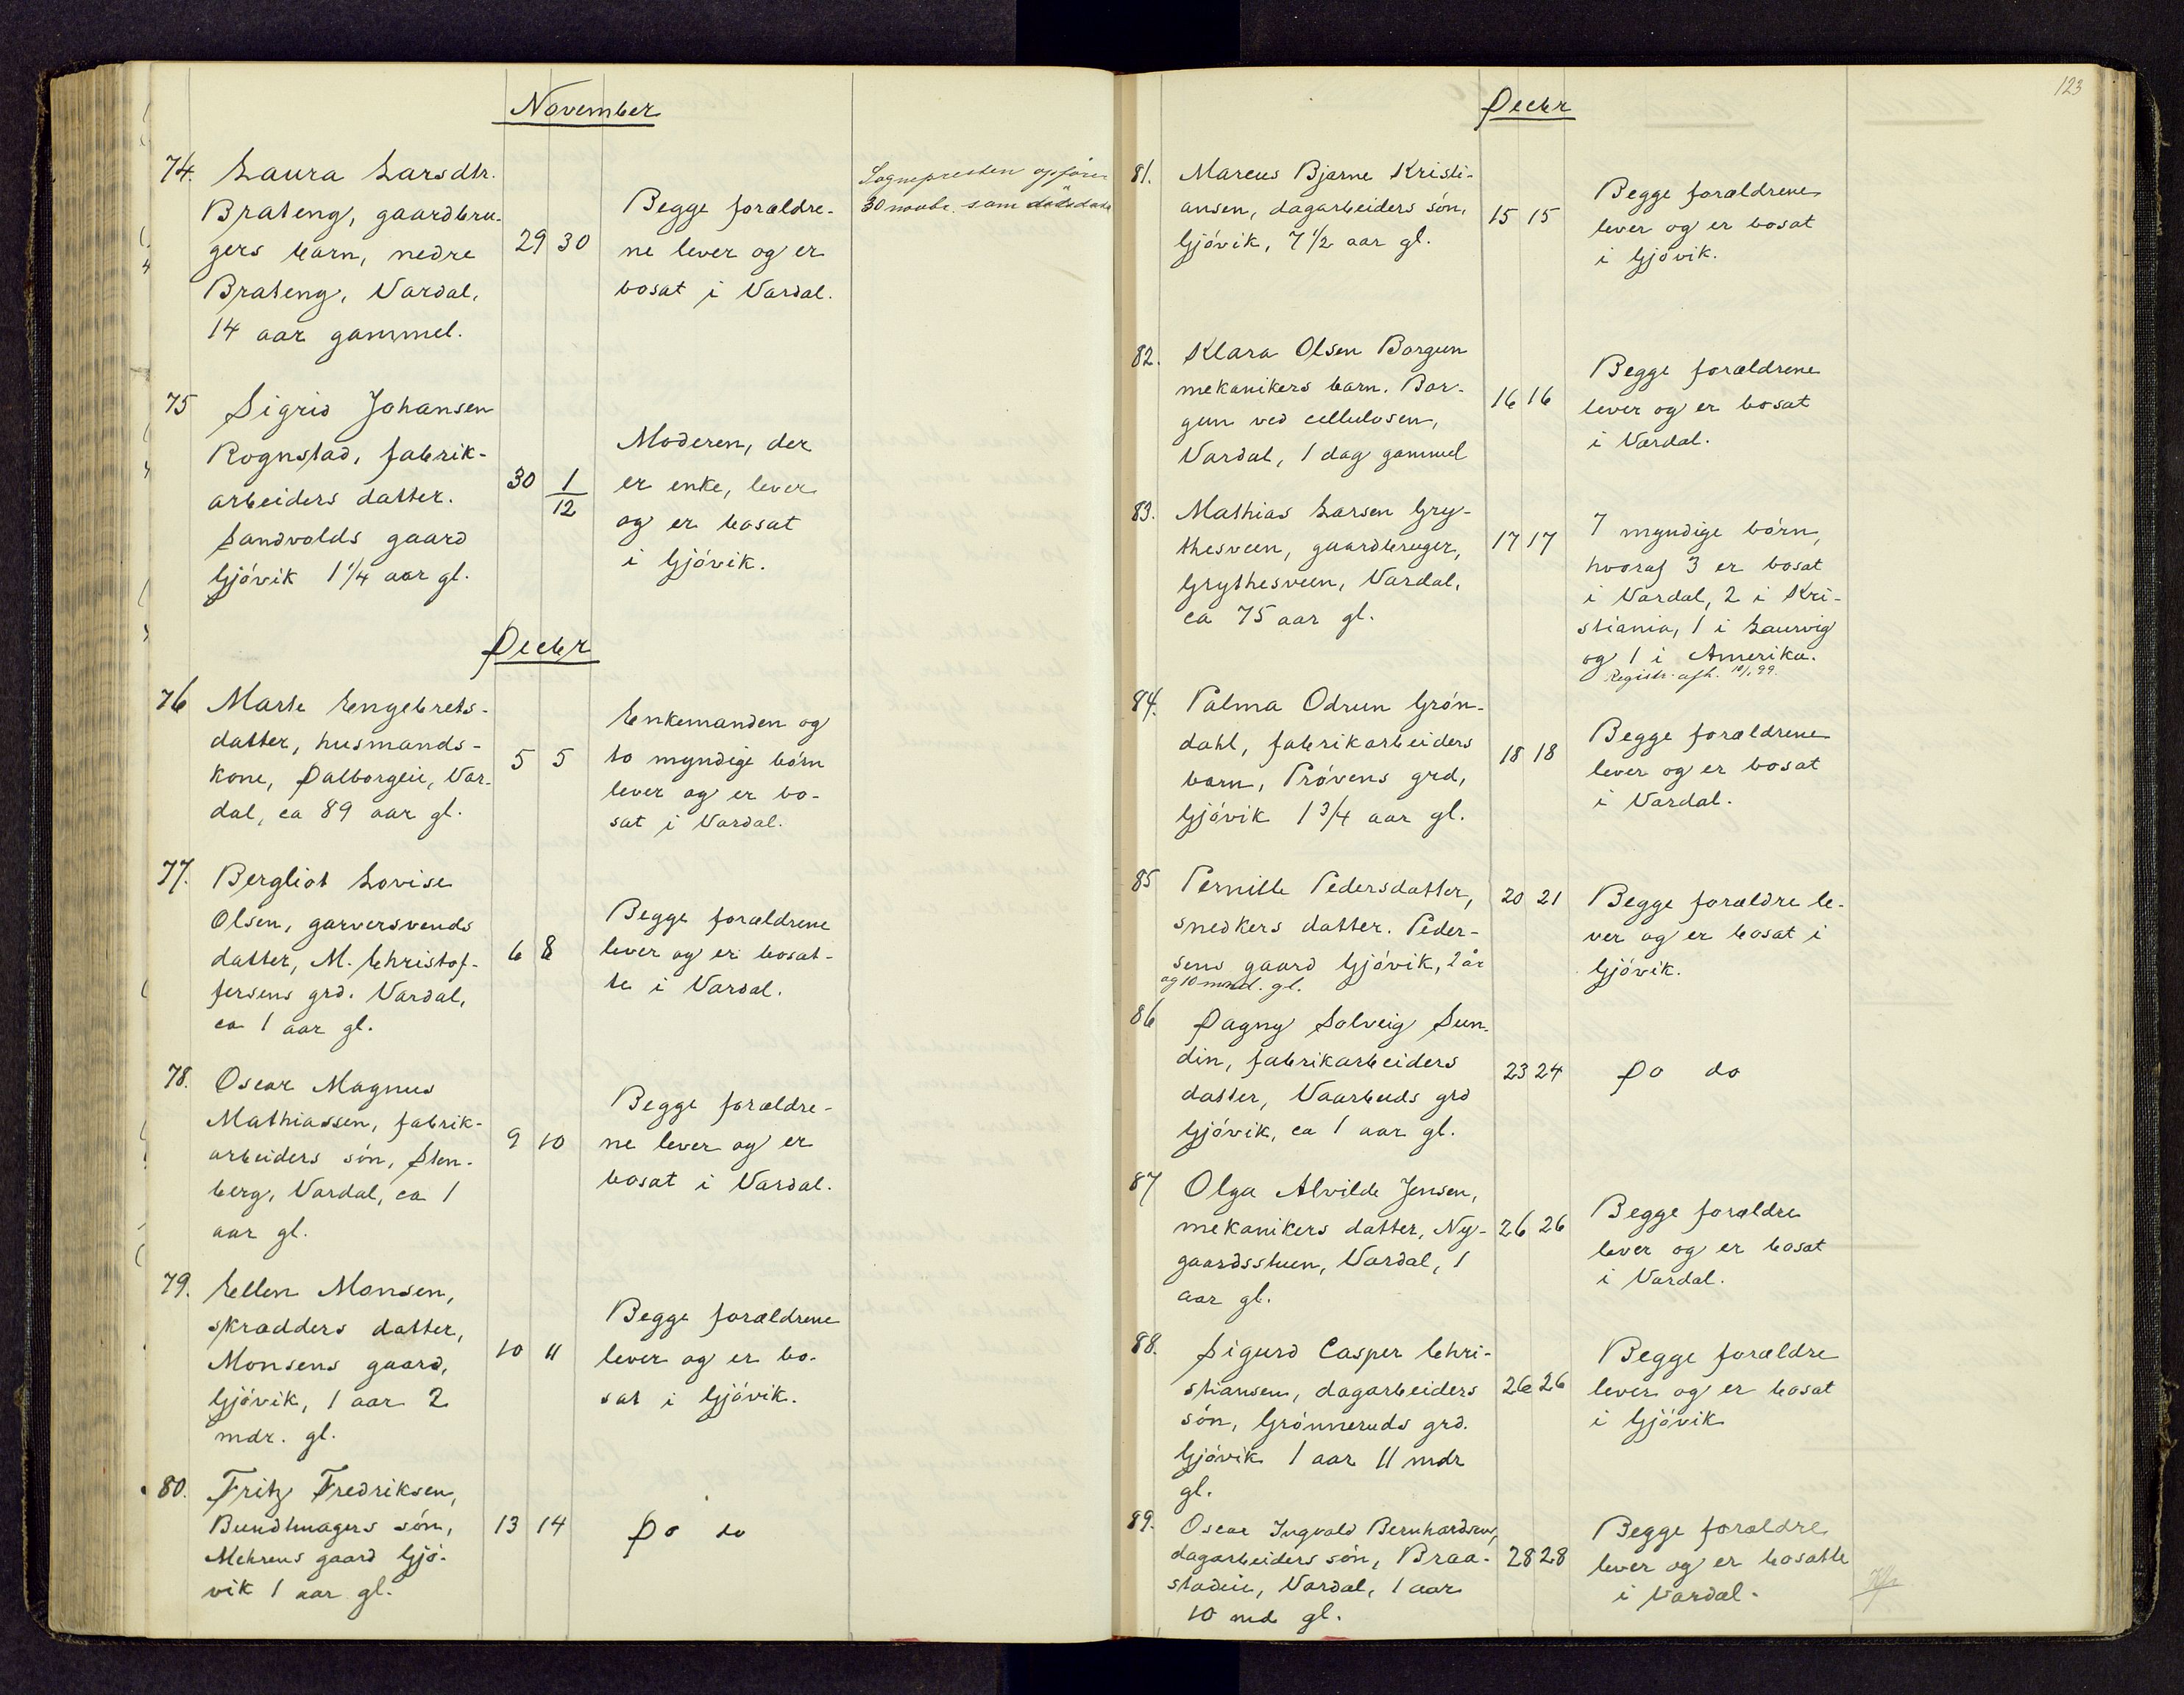 November
74. Laura Larsdtr.
Brateng, gaardbru-
gers barn, nedre
Brateng, Vardal,
14 aar gammel.
29 30
Begge forældre-
ne lever og er
bosat i Vardal.
Sognepresten opfører
30 novbr. som dødsdato
75 Sigrid Johansen
Rognstad, fabrik-
arbeiders datter.
Sandvolds gaard
Gjövik 1 1/4 aar gl.
30 1/12
Moderen, der
er enke, lever
og er bosat
i Gjövik.
Decbr
76 Marte Engebrets-
datter, husmands-
kone, Dalborgeie, Var-
dal, ca 89 aar gl.
5 5
Enkemanden og
to myndige börn
lever og er bo-
sat i Vardal.
77. Bergliot Lovise
Olsen, garversvends
datter, M. Christof-
fersens grd. Vardal,
ca 1 aar gl.
6 8
Begge forældrene
lever og er bosat-
te i Vardal.
78. Oscar Magnus
Mathiassen, fabrik-
arbeiders sön, Sten-
berg, Vardal, ca 1
aar gl.
9 10
Begge forældre-
ne lever og er
bosat i Vardal.
79. Ellen Monsen,
skrædders datter,
Monsens gaard,
Gjövik, 1 aar 2
mdr. gl.
10 11
Begge forældrene
lever og er bo-
sat i Gjövik.
80. Fritz Fredriksen,
Bundtmagers sön,
Mehrens gaard Gjö-
vik 1 aar gl.
13 14
Do do
123
Decbr
81. Marcus Bjarne Kristi-
ansen, dagarbeiders sön,
Gjövik, 7 1/2 aar gl.
15 15
Begge forældrene
lever og er bosat
i Gjövik.
82. Klara Olsen Borgun
mekanikers barn. Bor-
gun ved cellulosen,
Vardal, 1 dag gammel
16 16
Begge forældrene
lever og er bosat
i Vardal.
83. Mathias Larsen Gry-
thesveen, gaardbruger,
Grythesveen, Vardal,
ca 75 aar gl.
17 17
7 myndige börn,
hvoraf 3 er bosat
i Vardal, 2 i Kri-
stiania, 1 i Laurvig
og 1 i Amerika.
Registr. afh. 10/1 99.
84. Palma Odrun Grön-
dahl, fabrikarbeiders
barn, Prövens grd,
Gjövik 1 3/4 aar gl.
18 18
Begge forældrene
lever og er bosat
i Vardal.
85 Pernille Pedersdatter,
snedkers datter. Peder-
sens gaard Gjövik, 2 år
og 10 mnd. gl.
20 21
Begge forældre le-
ver og er bosat i
Gjövik.
86 Dagny Solveig Sun-
din, fabrikarbeiders
datter, Vaarbuds grd
Gjövik, ca 1 aar gl.
23 24
Do do
87 Olga Alvilde Jensen,
mekanikers datter, Ny-
gaardsstuen, Vardal, 1
aar gl.
26 26
Begge forældre
lever og er bosat
i Vardal.
88. Sigurd Casper Chri-
stiansen, dagarbeiders
sön, Grönneruds grd.
Gjövik 1 aar 11 mdr
gl.
26 26
Begge forældre
lever og er bosat
i Gjövik
89. Oscar Ingvald Bernhardsen,
dagarbeiders sön, Braa-
stadeie, Vardal, 1 aar
10 md gl.
28 28
Begge forældre
lever og er bosatte
i Vardal.